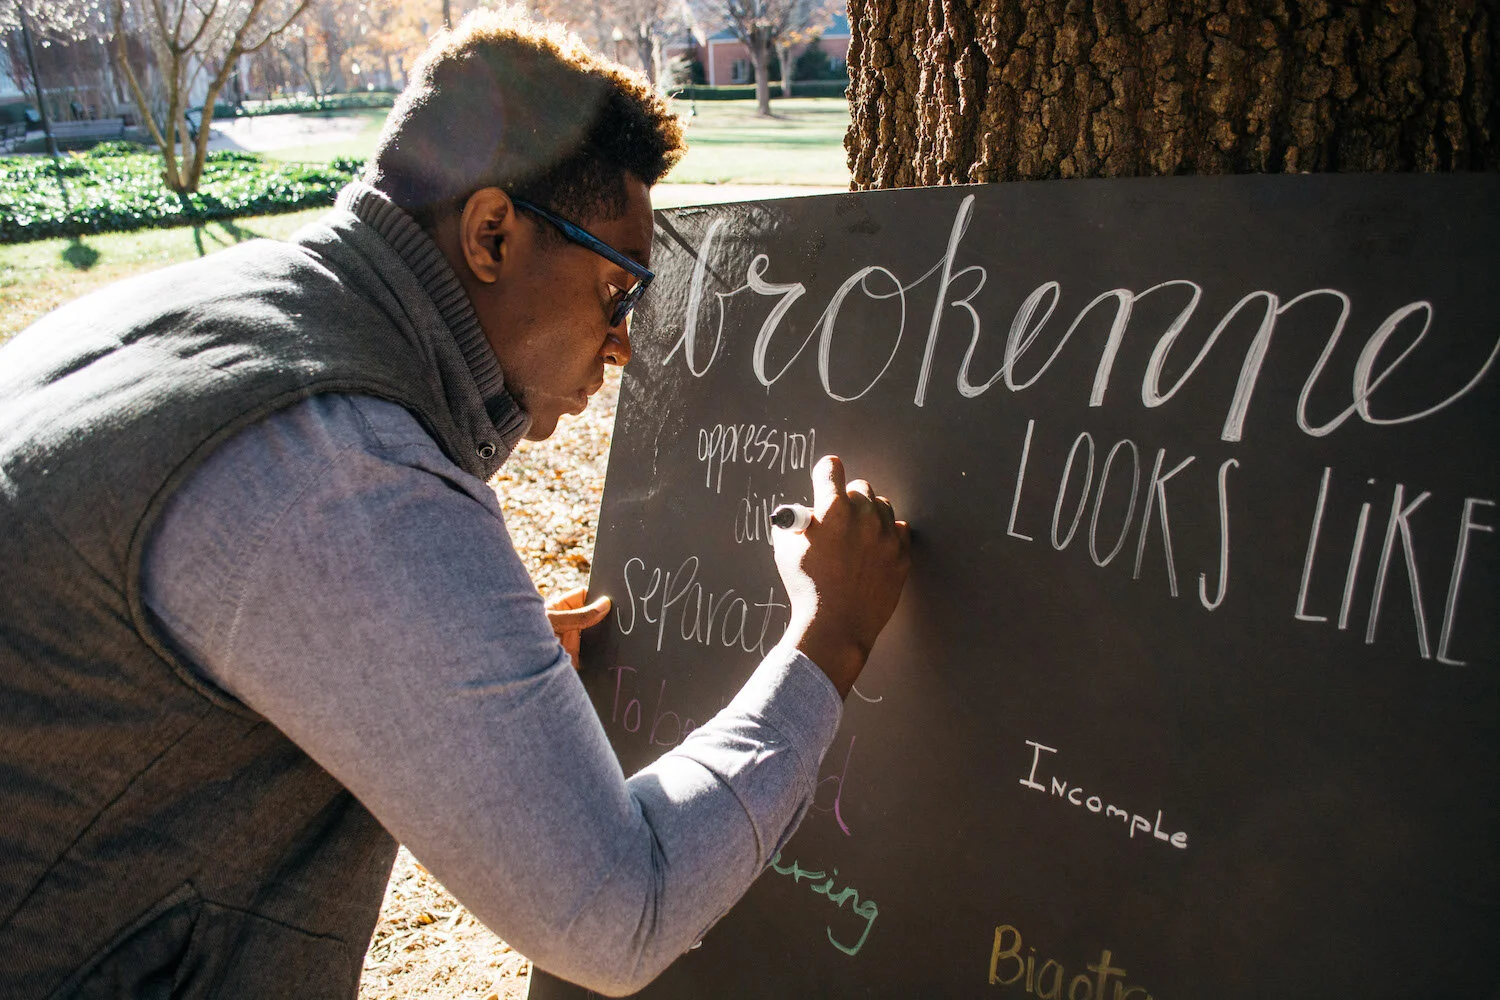 brokenne
LOOKS LIKE
oppression
divi
separat
To be
d
ering
Incomple
Bigotr